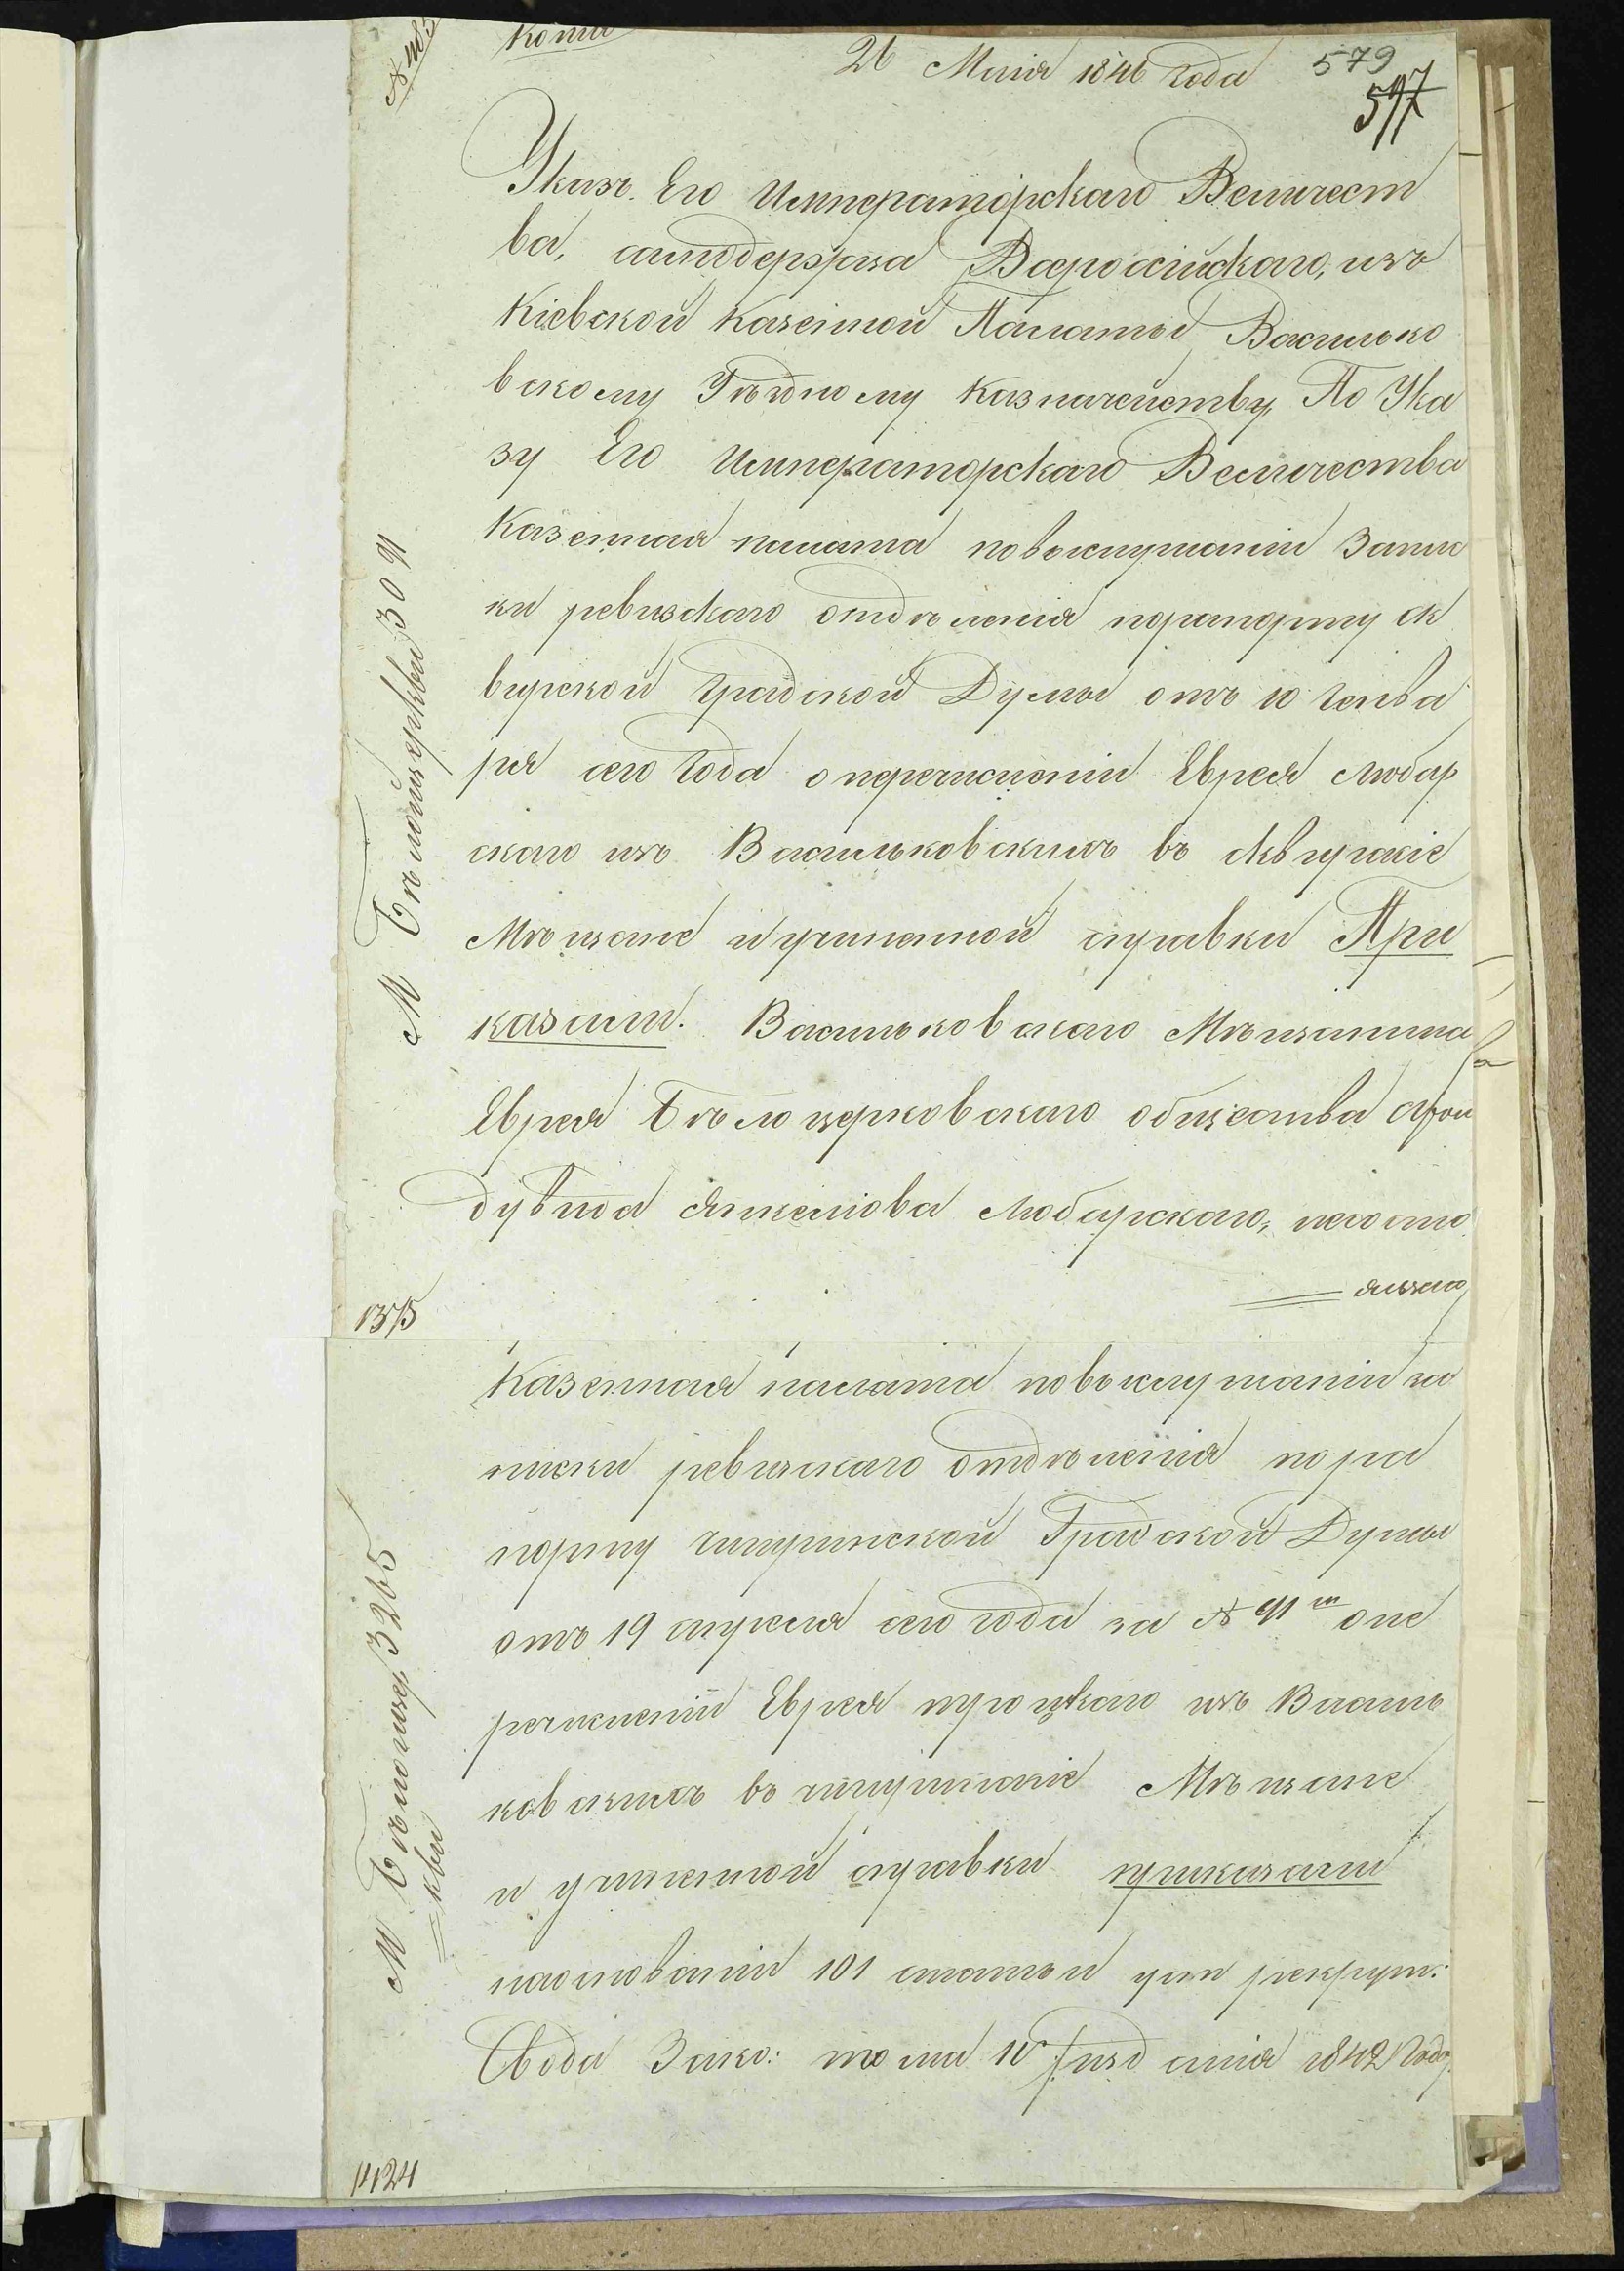 Копия
26 Маія 1846 года
579
597
Указъ Его Императорскаго Величест
ва, самодержца Всероссійскаго, изъ
Кіевской Казенной Палаты Василько
вскому Уѣздному Казначейству, По Ука
зу Его Императорскаго Величества
Казенная палата повыслушаніи Запис
ки ревизскаго отдѣленія порапорту ск
вирской Градской Думы отъ 10 генва
ря сего года о перечисленіи Еврея Любар
скаго изъ Васильковскихъ въ сквирскіе
Мѣщане и учиненной справки При
казали. Васильковскаго Мѣщанина
Еврея Бѣлоцерковскаго общества
Янкелюва Любарскаго, несосто
ящаго
М Бѣлойцеркви 3091
1375
Казенная палата повыслушаніи за
писки ревизскаго отдѣленія пора
порту чигиринской Градской Думы
отъ 19 апреля сего года за № 911 опе
речисленіи Еврея троцкаго изъ Василь
ковскихъ въ чигиринскіе Мѣщане
и учиненной справки приказали
наоснованіи 101 статьи уст рекрут:
Свода Зако: тома 10 изданія 1842 году
М Бѣлоцер 3265
кви
1424